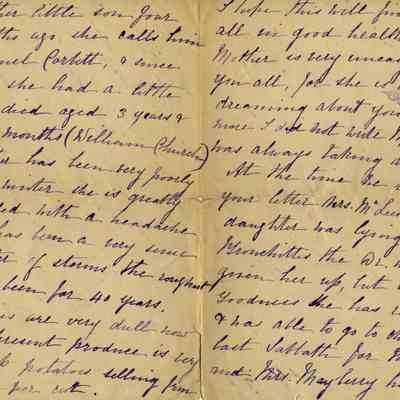 her little son four
ths ago she calls him
uel Corbett, & since
she had a little
died aged 3 years &
months (William Church)
has been very poorly
winter she is greatly
ed with a headache
has been a very severe
of storms the roughest
been for 40 years.
are very dull now
resent produce is very
potatoes selling from
per cwt.
I hope this will fin
all in good health
Mother is very uneas
you all, for she is
dreaming about you
more I did not write
was always taking a
At the time he
your letter Mrs. McLe
daughter was lying
Bronchitis the Dr.
given her up, but
Goodness she has
& was able to go to ch
last Sabbath for
and Mrs. Mayberry h